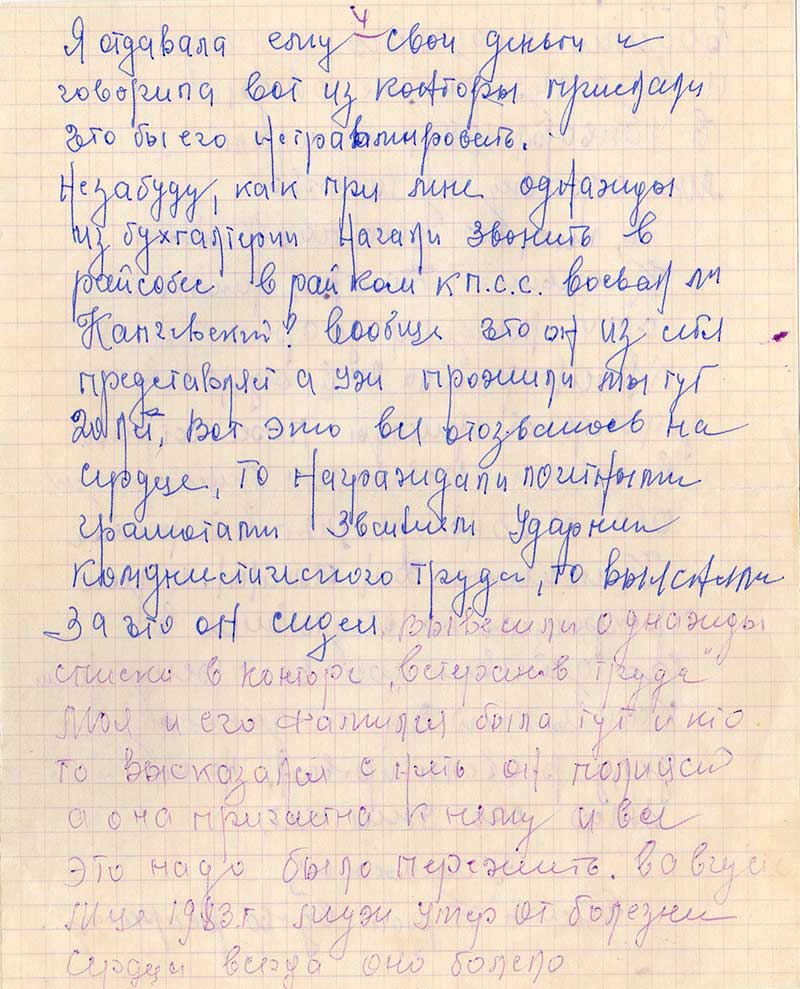 4
Я отдавала ему свои деньги и
говорила вот из конторы прислали
што бы его нетравмировать.
Незабуду, как при мне однажды
из бухгалтерии начали звонить в
райсобес в райком КП.С.С. воевал ли
вообще што он из себя
представляет а уже прожили мы тут
Вот это все отозвалось на
сердце, то награждали почетными
грамотами званием Ударник
комунистического труда, то выясняли
За што он сидел. Вывесили однажды
списки в конторе „ветеранов труда"
Моя и его фамилия была тут и кто
то высказался снять он полицай
а она причастна к нему и все
это надо было пережить. в авгус
м-це 1983 г муж умер от болезни
сердца всегда оно болело